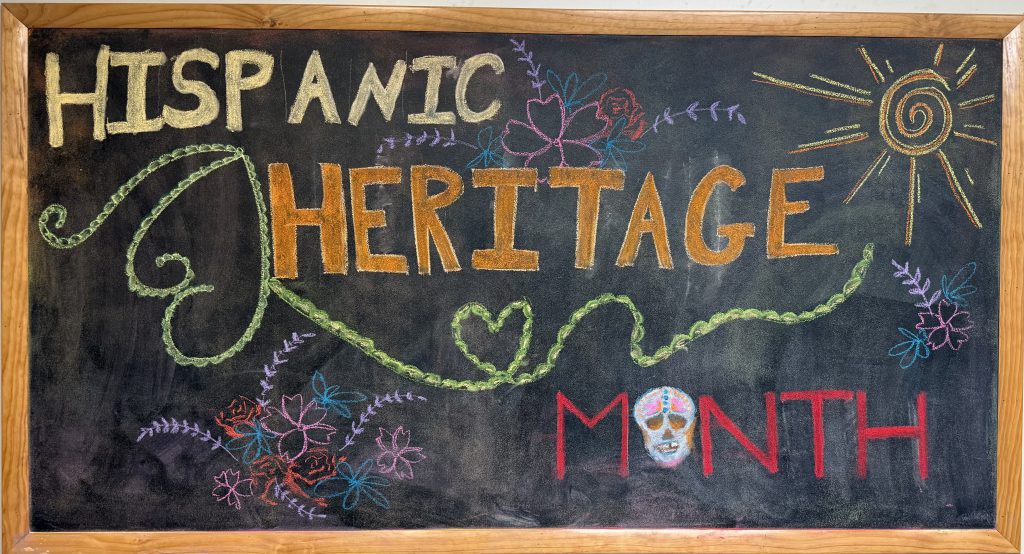 HISPANIC
HERITAGE
MONTH